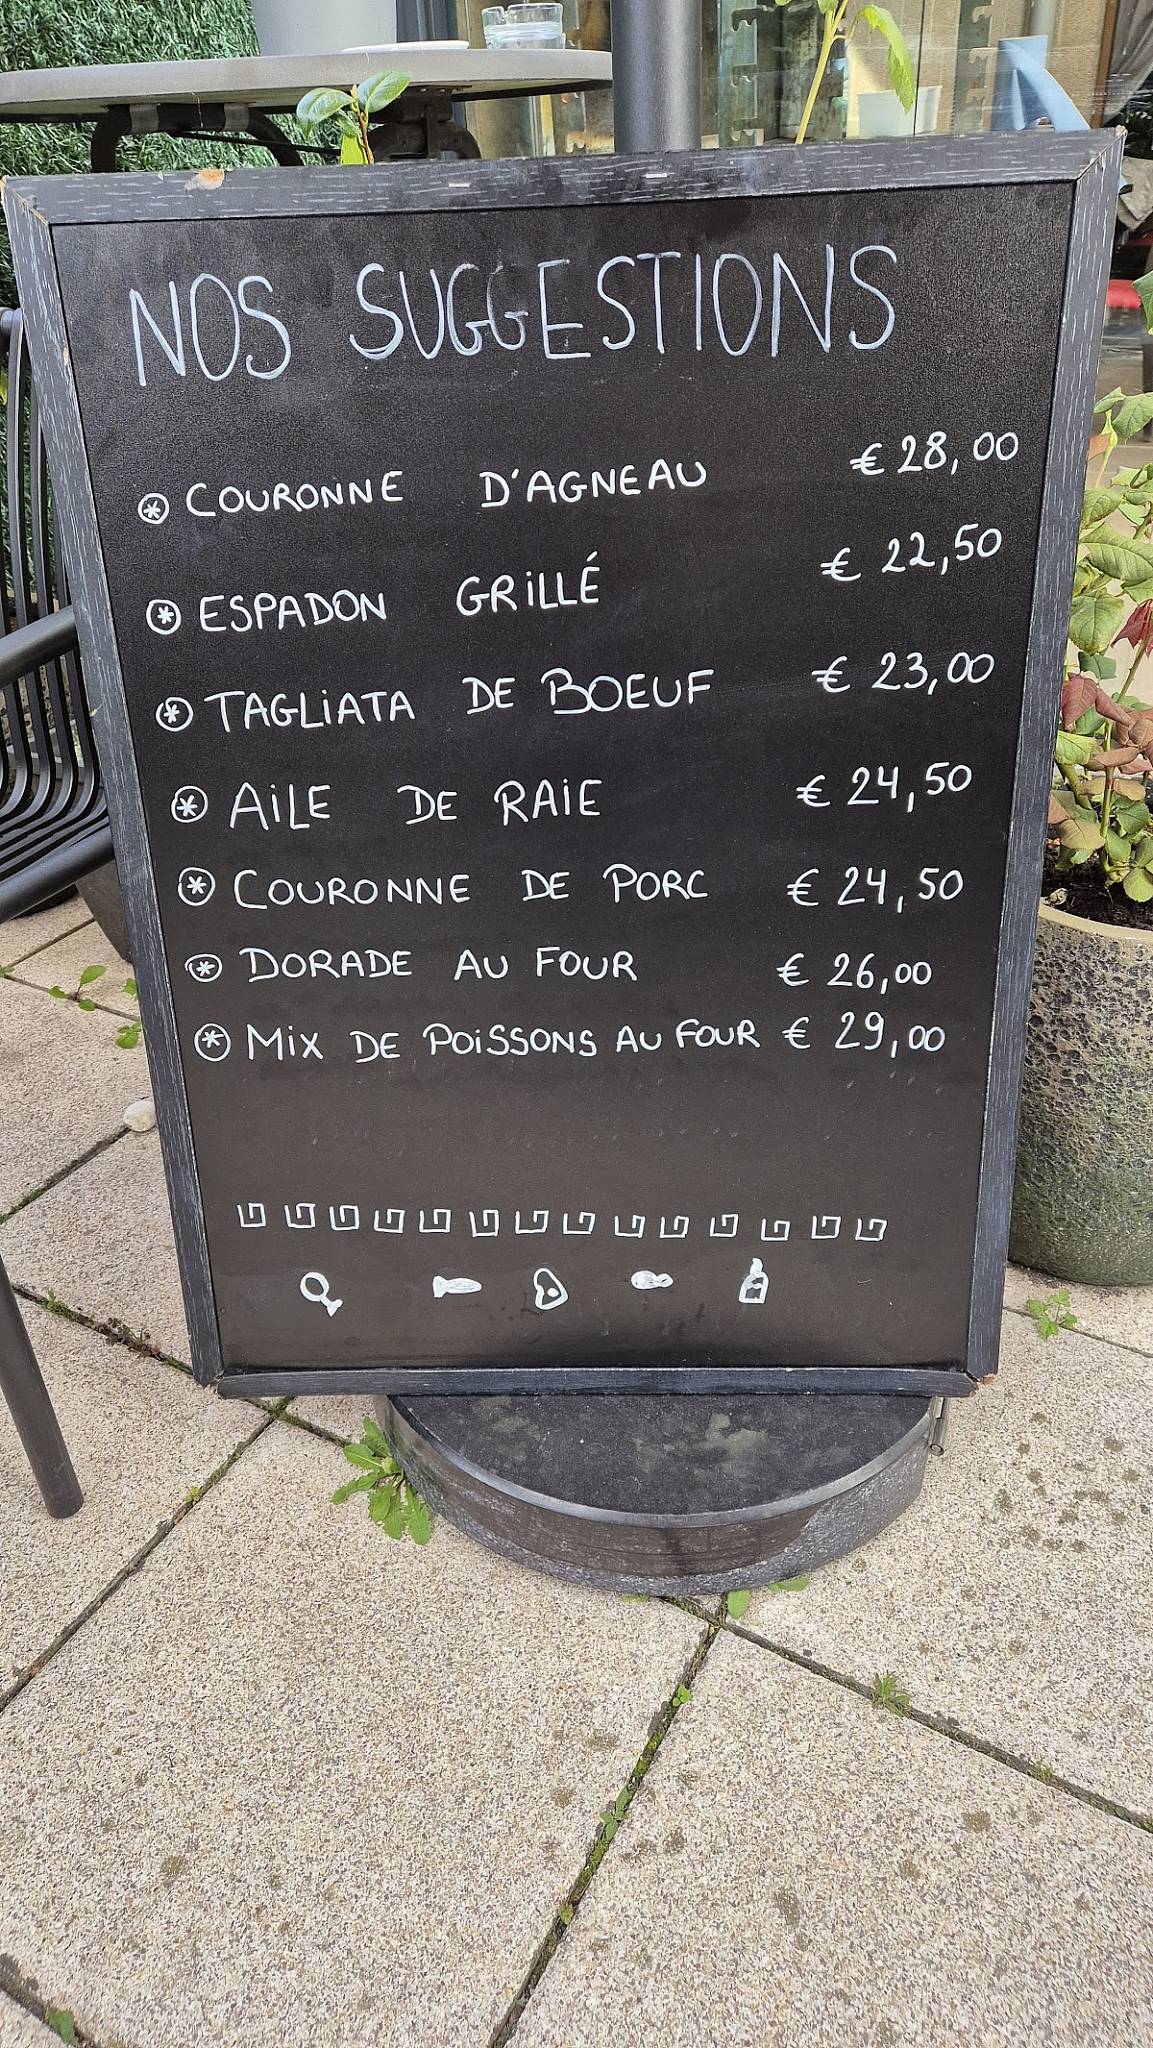 NOS SUGGESTIONS
COURONNE D'AGNEAU € 28,00
ESPADON GRILLÉ € 22,50
TAGLIATA DE BOEUF € 23,00
AILE DE RAIE € 24,50
COURONNE DE PORC € 24,50
DORADE AU FOUR € 26,00
MIX DE POISSONS AU FOUR € 29,00